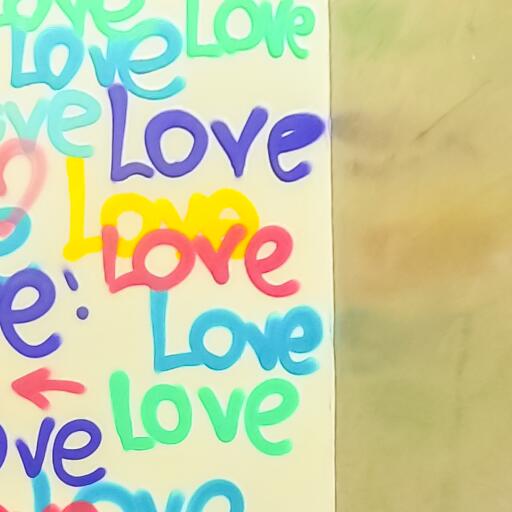 Love Love
Love
Love
Love
Love
Love
Love
Love
Love